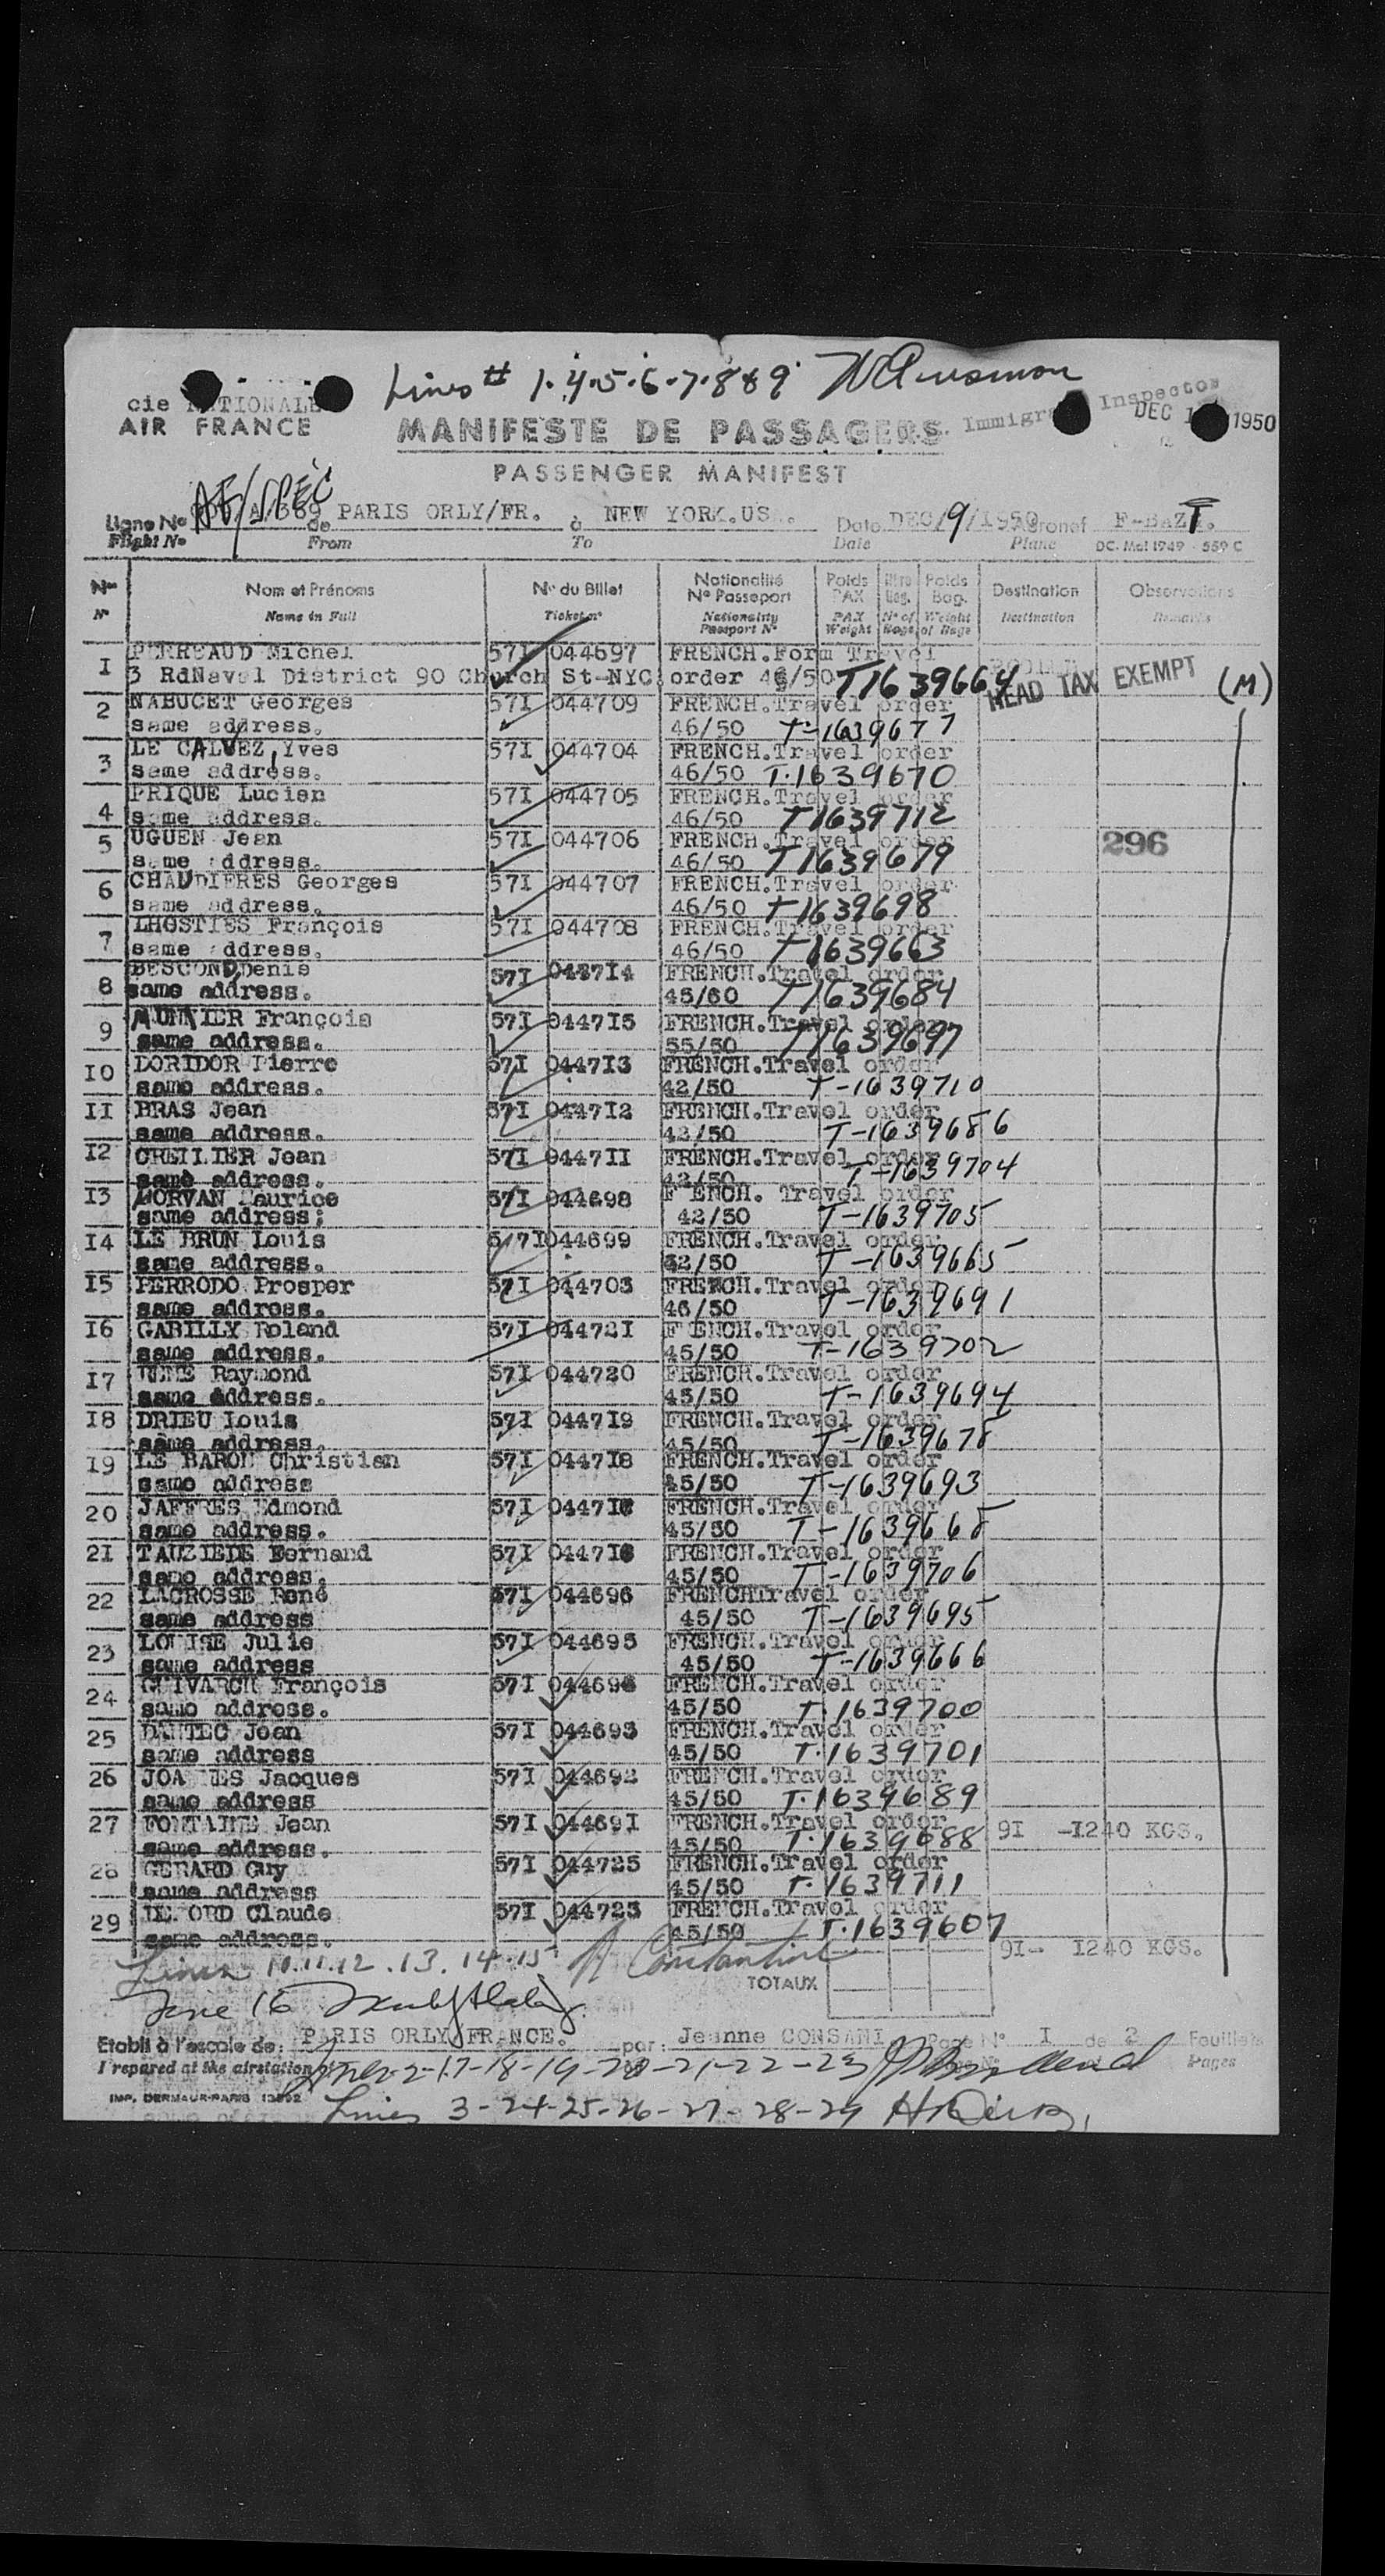 Lines # 1.4.5.6.7.8 & 9
cie NATIONALE
AIR FRANCE
MANIFESTE DE PASSAGERS
Immigrant Inspector
DEC 1 1950
PASSENGER MANIFEST
Ligne No AF/SPEC de PARIS ORLY/FR. à NEW YORK.US. Date DEC/9/1950 Aéronef F-BAZT.
Flight No From To Date Plane DC. Mai 1949 - 559 C
Nos Nom et Prénoms No du Billet Nationalité No Passeport Poids PAX Nbre Bag. Poids Bag. Destination Observations
No Name in Full Ticket no Nationality Passport No PAX Weight No of Bags Weight of Bags Destination Remarks
1 PERREAUD Michel 57I 044697 FRENCH.Form Travel
3 RdNaval District 90 Church St-NYC order 46/50 T1639664 HEAD TAX EXEMPT (M)
2 NABUCET Georges 57I 044709 FRENCH.Travel order
same address. 46/50 T-1639677
3 LE CALVEZ Yves 57I 044704 FRENCH.Travel order
same address. 46/50 T.1639670
4 PRIQUE Lucien 57I 044705 FRENCH.Travel order
same address. 46/50 T1639712
5 UGUEN Jean 57I 044706 FRENCH.Travel order 296
same address. 46/50 T1639679
6 CHAUDIERES Georges 57I 044707 FRENCH.Travel order
same address. 46/50 T1639698
7 LHOSTIES François 57I 044708 FRENCH.Travel order
same address. 46/50 T1639663
8 BESCOND Denis 57I 044714 FRENCH.Travel order
same address. 45/60 T1639684
9 MUNIER François 57I 044715 FRENCH.Travel order
same address. 55/50 T1639697
10 DORIDOR Pierre 57I 044713 FRENCH.Travel order
same address. 42/50 T-1639710
11 BRAS Jean 57I 044712 FRENCH.Travel order
same address. 42/50 T-1639686
12 CREILIER Jean 57I 044711 FRENCH.Travel order
same address. 42/50 T-1639704
13 MORVAN Maurice 57I 044698 F ENCH. Travel order
same address; 42/50 T-1639705
14 LE BRUN Louis 57I 044699 FRENCH.Travel order
same address. 42/50 T-1639665
15 PERRODO Prosper 57I 044703 FRENCH.Travel order
same address. 46/50 T-1639691
16 GABILLY Roland 57I 044721 F ENCH.Travel order
same address. 45/50 T-1639702
17 Raymond 57I 044720 FRENCH.Travel order
same address. 45/50 T-1639694
18 DRIEU Louis 57I 044719 FRENCH.Travel order
same address. 45/50 T-1639678
19 LE BARON Christian 57I 044718 FRENCH.Travel order
same address 45/50 T-1639693
20 JAFFRES Edmond 57I FRENCH.Travel order
same address. 45/50 T-1639668
21 TAUZIEDE Fernand 57I 044716 FRENCH.Travel order
same address. 45/50 T-1639706
22 LACROSSE René 57I 044696 FRENCHTravel order
same address 45/50 T-1639695
23 LOUISE Julie 57I 044695 FRENCH.Travel order
same address 45/50 T-1639666
24 GUIVARCH François 57I FRENCH.Travel order
same address. 45/50 T.1639700
25 DANTEC Jean 57I 044693 FRENCH.Travel order
same address 45/50 T.1639701
26 JOA ES Jacques 57I 044692 FRENCH.Travel order
same address 45/50 T.1639689
27 FONTAINE Jean 57I 044691 FRENCH.Travel order 91 -1240 KGS.
same address. 45/50 T.1639688
28 GERARD Guy 57I 044725 FRENCH.Travel order
same address 45/50 T.1639711
29 Claude 57I 044723 FRENCH.Travel order
same address. 45/50 T.1639607
Lines 10.11.12.13.14.15 A Constantine 91- 1240 KGS.
TOTAUX
Line 16
Etabli à l'escale de: PARIS ORLY/FRANCE. par: Jeanne CONSANI Page No 1 de 2 Feuillets
Prepared at the airstation Pages
Lines 2-17-18-19-20-21-22-23
IMP. DERMAUR-PARIS
Lines 3-24-25-26-27-28-29